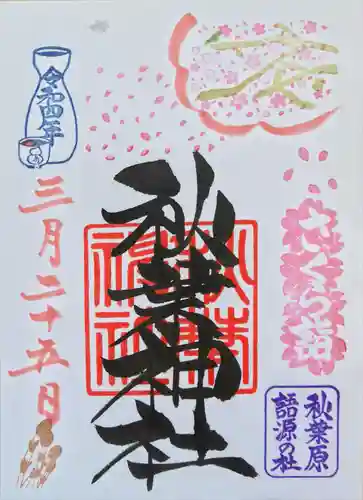 さくら詣
秋葉原
語源の社
秋葉神社
令和四年
三月二十五日